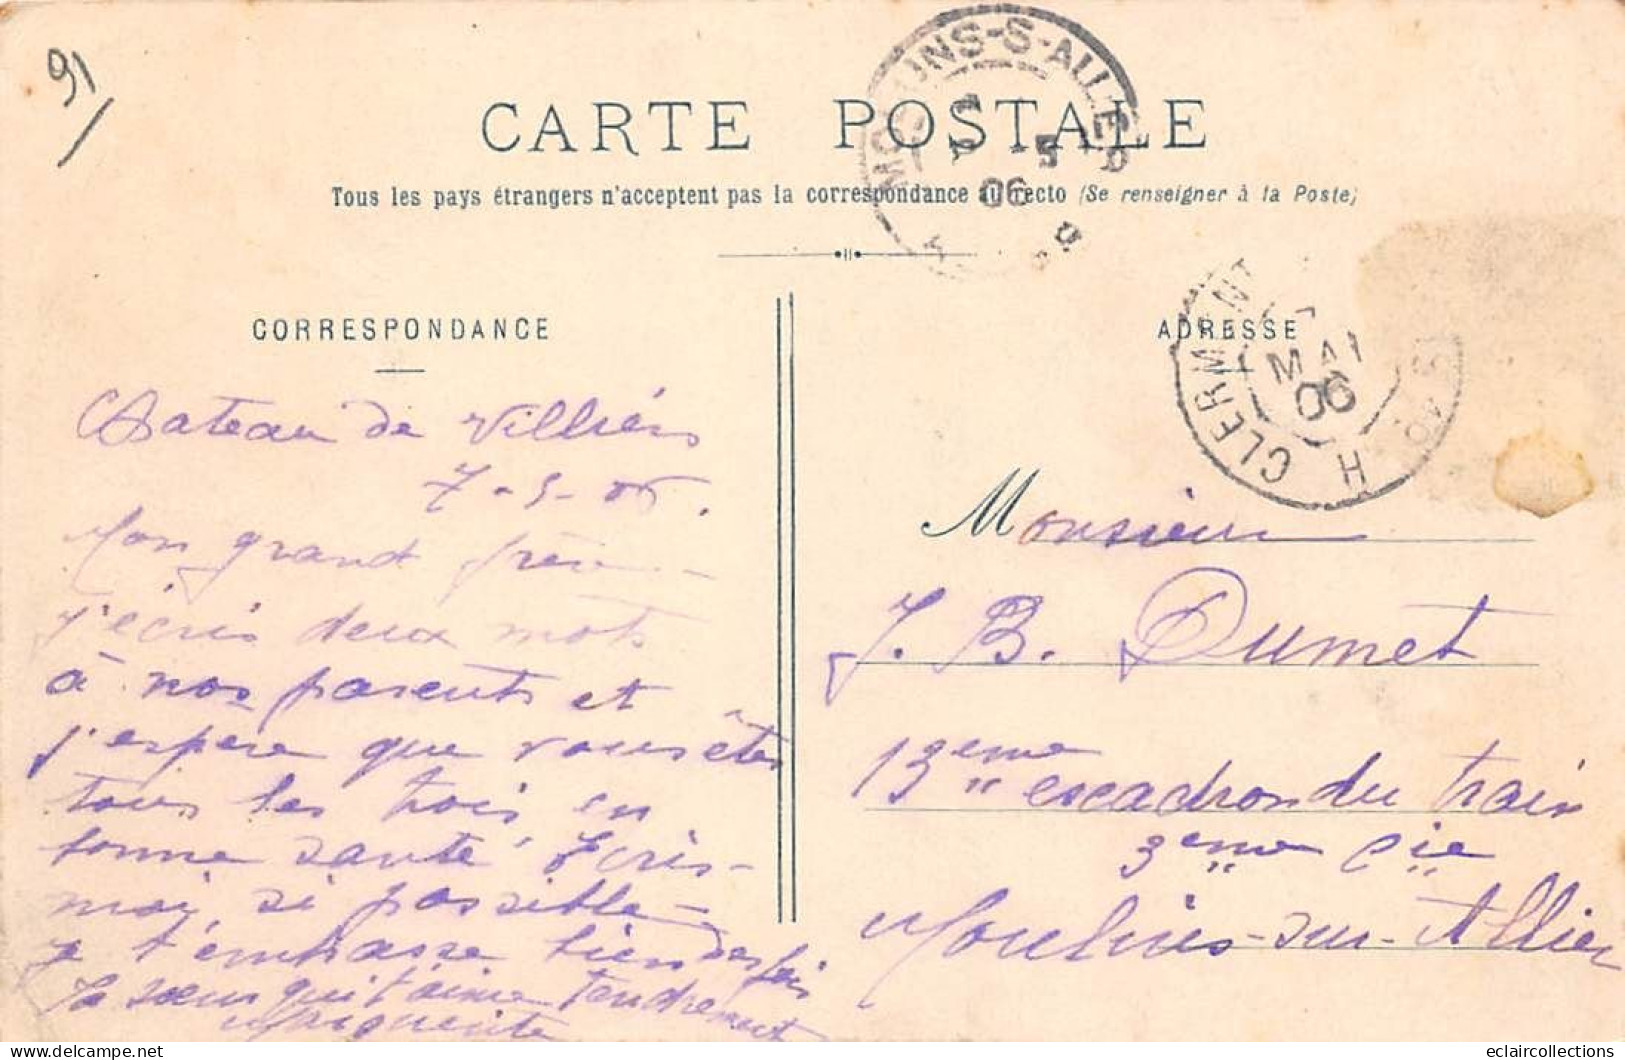 91
CARTE POSTALE
Tous les pays étrangers n'acceptent pas la correspondance au recto (Se renseigner à la Poste)
MOULINS-S-ALLIER
5
06
CORRESPONDANCE
ADRESSE
CLERMONT
MAI
06
H
Chateau de Villiérs
7-5-06.
Mon grand frère
j'écris deux mots
à nos parents et
j'espère que vous êtes
tous les trois en
bonne santé. Ecris-
moi, si possible
je t'embrasse bien des fois
ta sœur qui t'aime tendrement
Marguerite
Monsieur
J. B. Dumet
13eme escadron du train
3eme Cie
Moulins-sur-Allier
eclaircollections